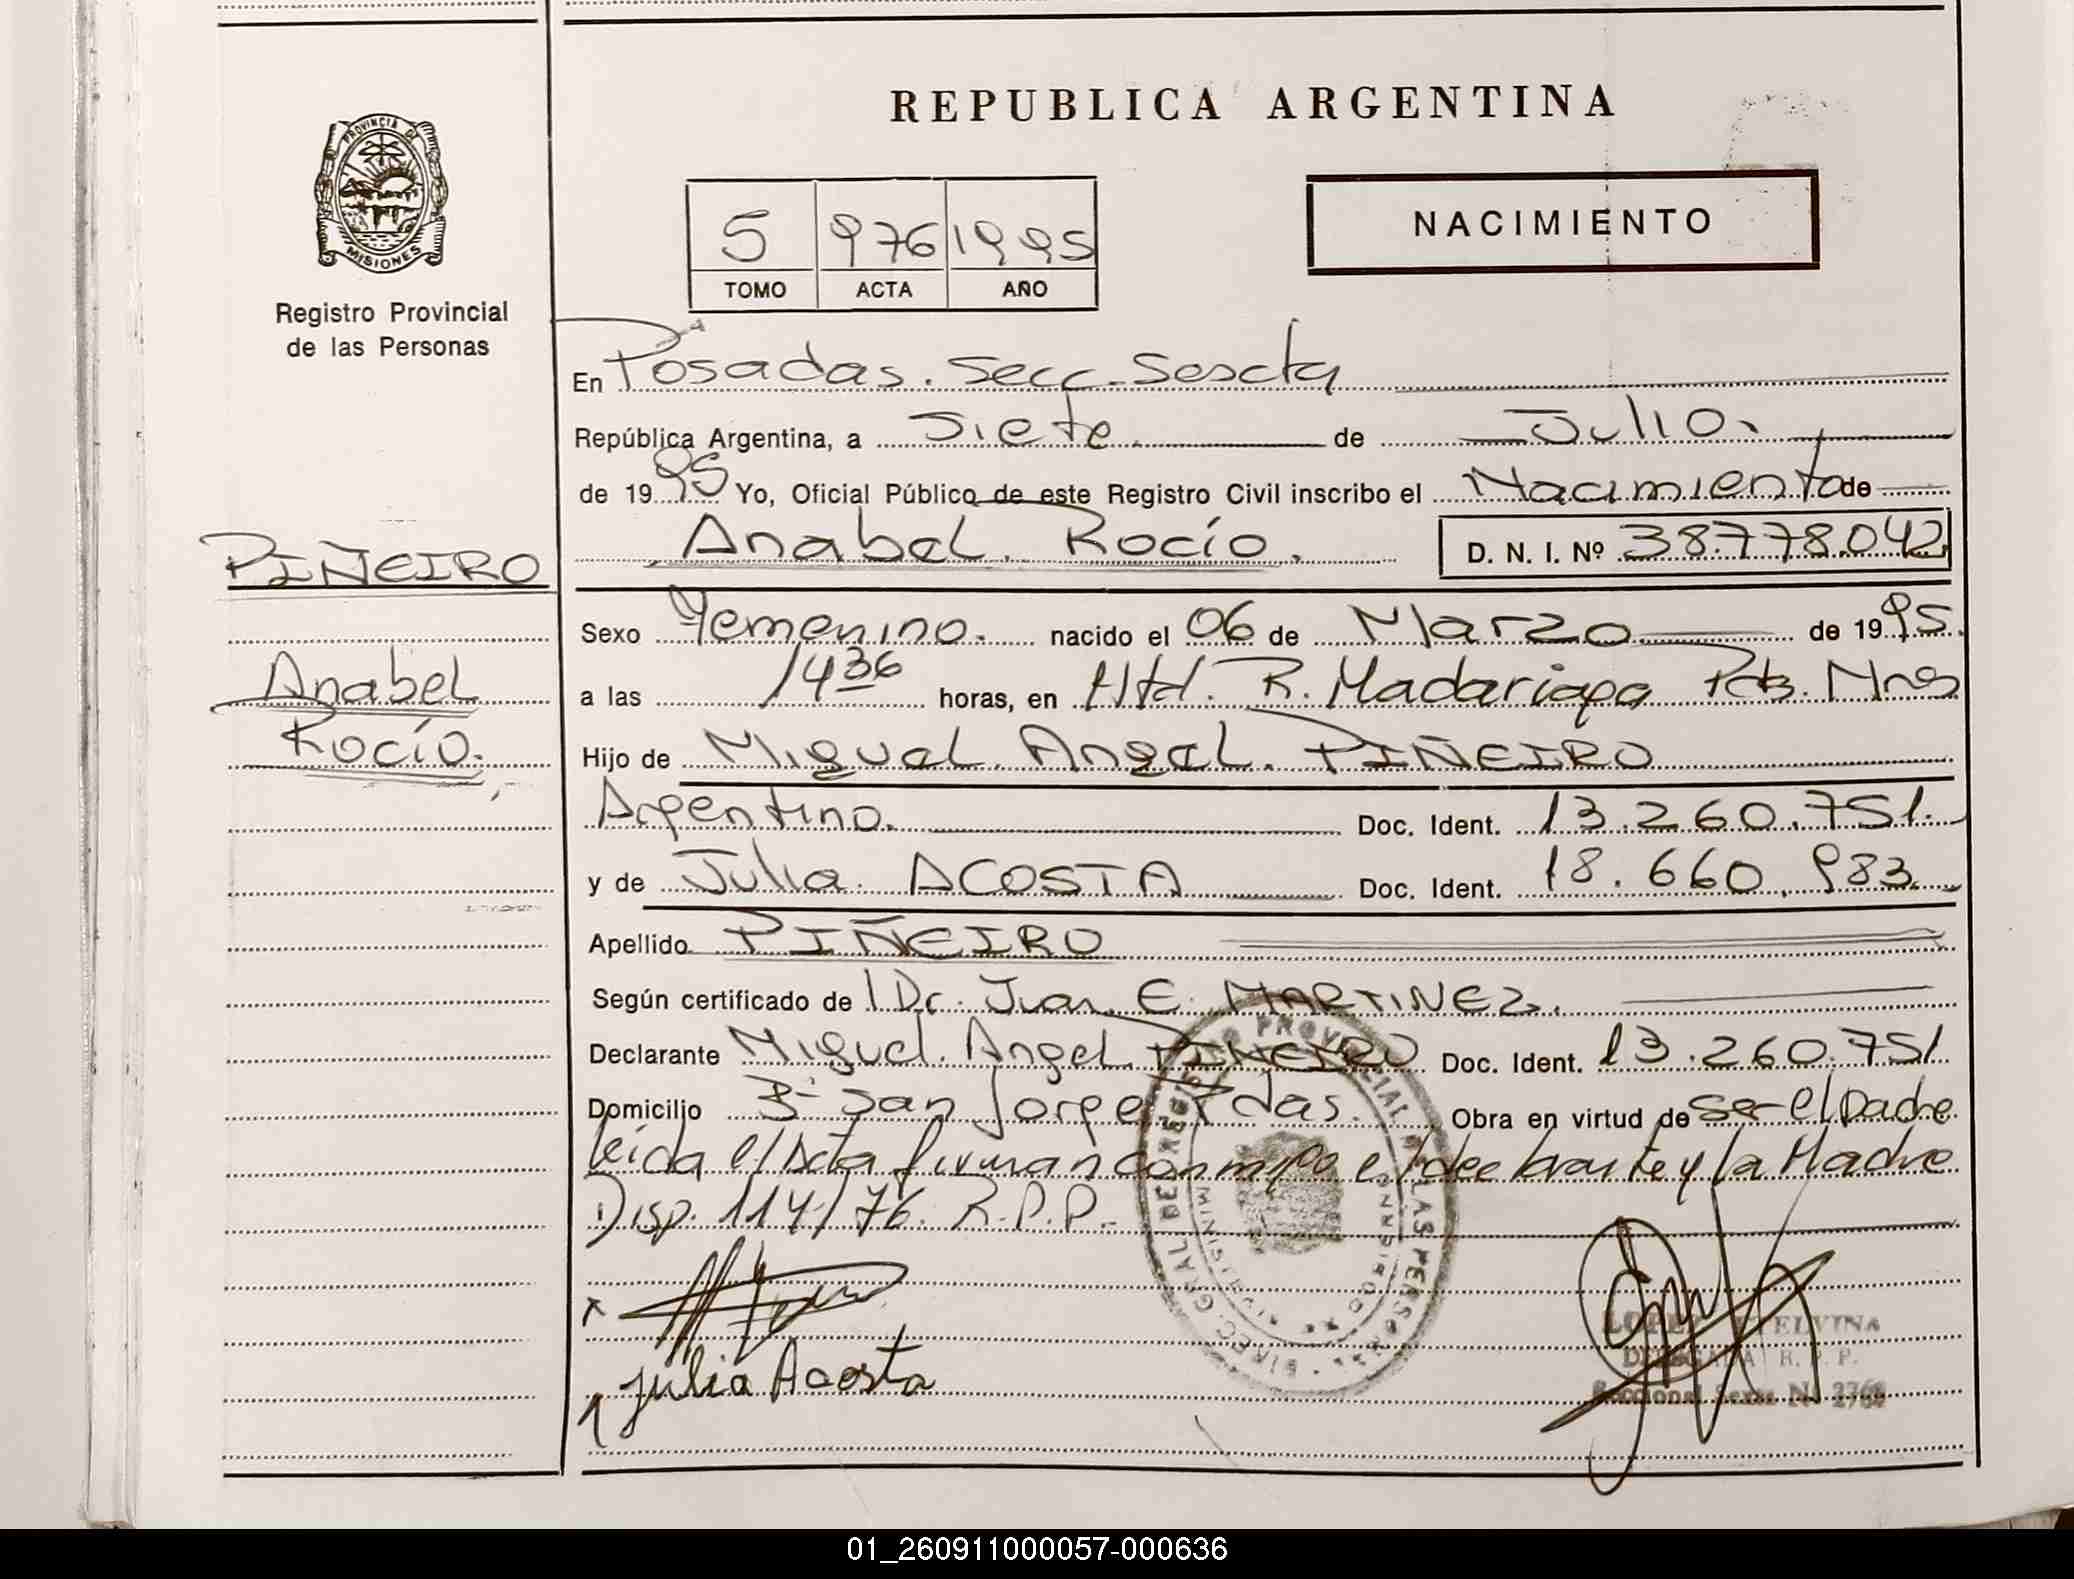 REPUBLICA ARGENTINA
PROVINCIA DE
MISIONES
Registro Provincial
de las Personas
5 976 1995
TOMO ACTA AÑO
NACIMIENTO
En Posadas. Secc. Sescta
República Argentina, a Siete de Julio.
de 1995 Yo, Oficial Público de este Registro Civil inscribo el Nacimiento de
Anabel. Rocío. D. N. I. Nº 38.778.042
PIÑEIRO
Anabel
Rocío.
Sexo Femenino. nacido el 06 de Marzo de 1995.
a las 1436 horas, en Htal. R. Madariaga Pdas. Mnes
Hijo de Miguel. Angel. PIÑEIRO
Argentino. Doc. Ident. 13.260.751.
y de Julia. ACOSTA Doc. Ident. 18.660.983.
Apellido PIÑEIRO
Según certificado de Dr. Juan. E. MARTINEZ.
Declarante Miguel. Angel. PIÑEIRO Doc. Ident. 13.260.751
Domicilio Bº San Jorge Pdas. Obra en virtud de Ser el Padre
leida el Acta firman conmigo el declarante y la Madre
Disp. 114/76. R.P.P.
Julia Acosta
DIREC. GRAL DE REGISTRO PROVINCIAL DE LAS PERSONAS
LOPEZ ELVINA
DELEGADA R. P. P.
Seccional Sexta Nº
01_260911000057-000636